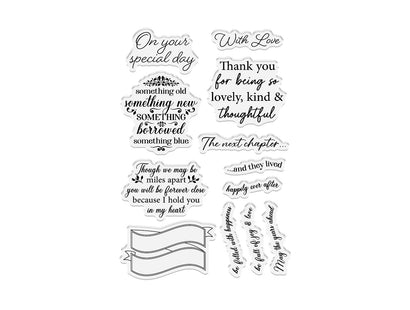 On your
special day
With Love
Thank you
for being so
lovely, kind &
thoughtful
something old
something new
SOMETHING
borrowed
something blue
The next chapter...
...and they lived
happily ever after
Though we may be
miles apart
you will be forever close
because I hold you
in my heart
be filled with happiness
be full of joy & love
May the years ahead